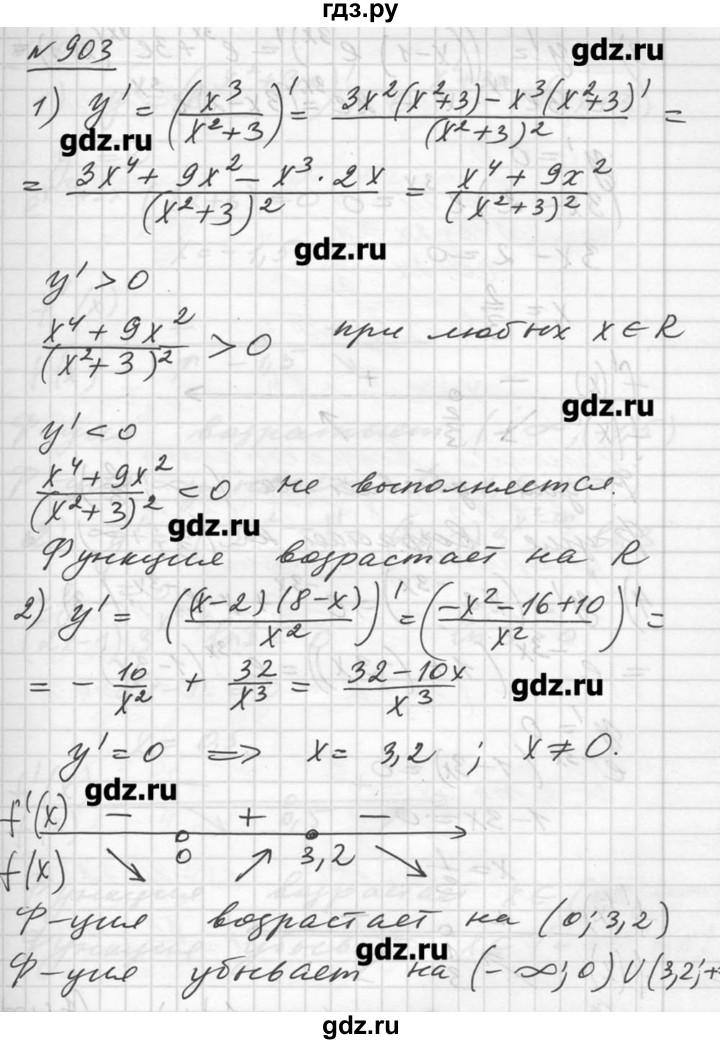 гдз.ру
№ 903
gdz.ru
1) y' = (x³/(x²+3))' = (3x²(x²+3) - x³(x²+3)')/(x²+3)² =
gdz.ru
= (3x⁴ + 9x² - x³ · 2x)/(x²+3)² = (x⁴ + 9x²)/(x²+3)²
gdz.ru
y' > 0
(x⁴ + 9x²)/(x²+3)² > 0 при любых x ∈ R
gdz.ru
y' < 0
(x⁴ + 9x²)/(x²+3)² < 0 не выполняется.
gdz.ru
Функция возрастает на R
2) y' = ((x-2)(8-x)/x²)' = ((-x² - 16 + 10)/x²)' =
= - 10/x² + 32/x³ = (32 - 10x)/x³
gdz.ru
y' = 0 => x = 3,2 ; x ≠ 0.
gdz.ru
f'(x) − + −
0 3,2
f(x) ↘ ↗ ↘
Ф-ция возрастает на (0; 3,2)
gdz.ru
Ф-ция убывает на (-∞; 0) U (3,2; +
gdz.ru